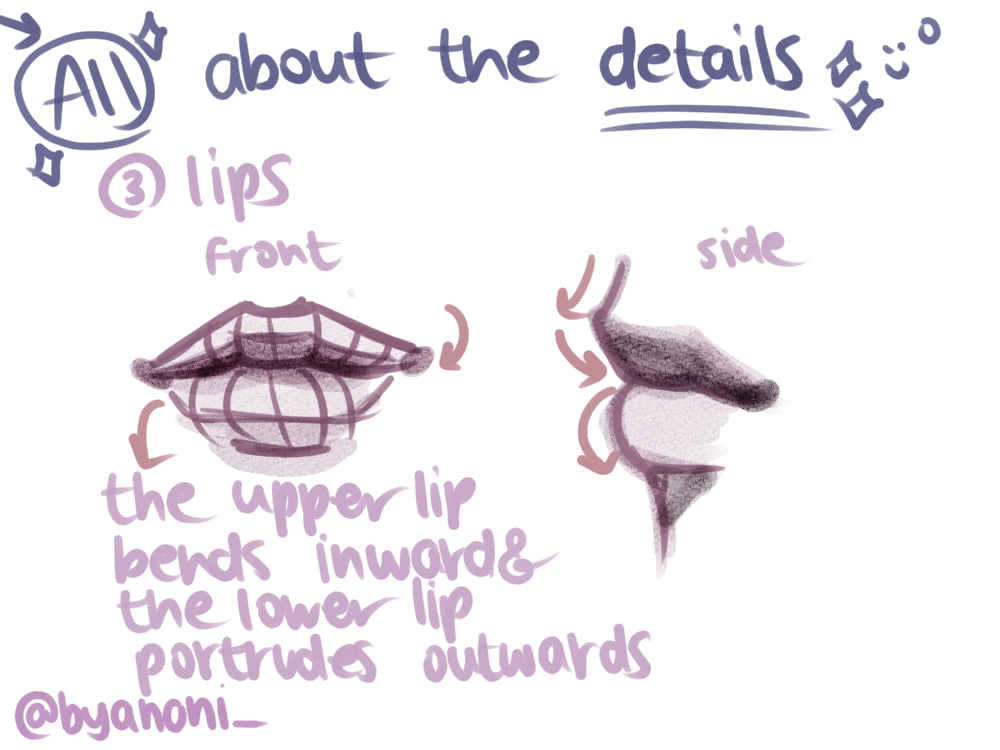 All about the details
③ lips
front
side
the upper lip
bends inward&
the lower lip
portrudes outwards
@byanoni_